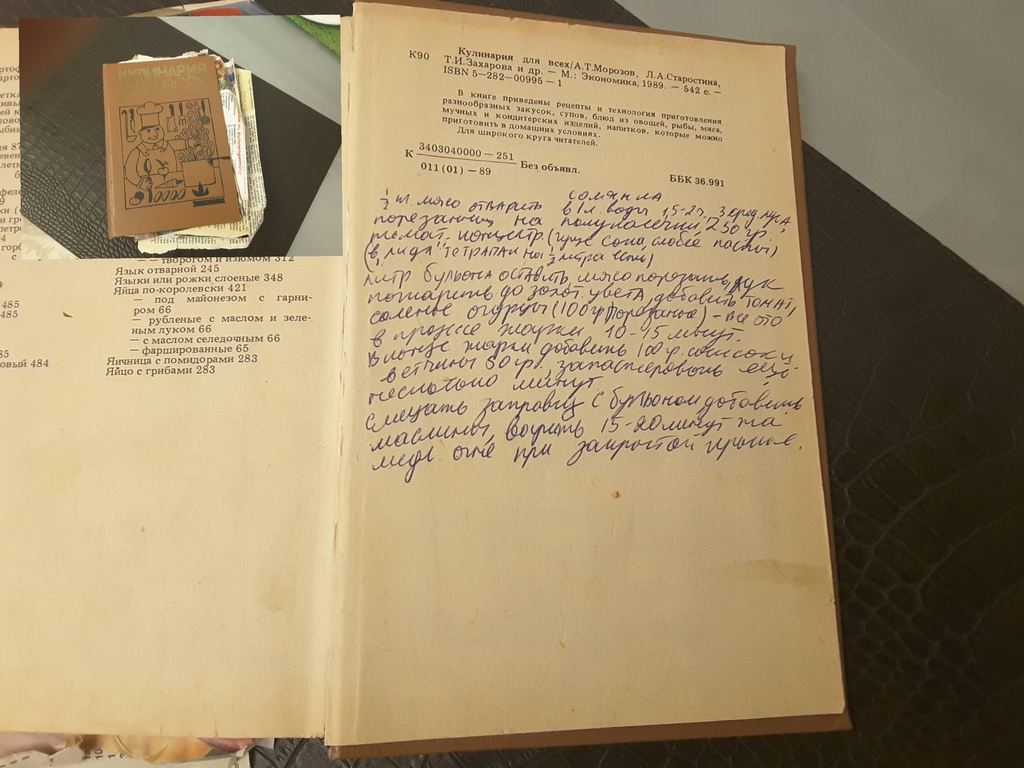 КУЛИНАРИЯ
ДЛЯ ВСЕХ
— творогом и изюмом 312
Язык отварной 245
Языки или рожки слоеные 348
Яйца по-королевски 421
— под майонезом с гарни-
ром 66
— рубленые с маслом и зеле-
ным луком 66
— с маслом селедочным 66
— фаршированные 65
Яичница с помидорами 283
Яйцо с грибами 283
485
485
485
овый 484
К90
Кулинария для всех/А.Т.Морозов, Л.А.Старостина,
Т.И.Захарова и др. — М.: Экономика, 1989. — 542 с. —
ISBN 5—282—00995—1
В книге приведены рецепты и технология приготовления
разнообразных закусок, супов, блюд из овощей, рыбы, мяса,
мучных и кондитерских изделий, напитков, которые можно
приготовить в домашних условиях.
Для широкого круга читателей.
К 3403040000—251
011(01)—89
Без объявл.
ББК 36.991
солянка
½ кг. мясо отварить в 1л. воды 1,5-2ч. 3 сред. лука
порезанных на полуколечки, 250 гр.
томат. концентр. (гуще сока, слабее пасты)
(в виде "тетрапак на ½ литра есть)
литр бульона оставить, мясо порезать, лук
пожарить до золот. цвета, добавить томат,
соленые огурцы (100 гр порезанные) - все это
в процессе жарки 10-15 минут.
В конце жарки добавить 100 гр. сосисок,
ветчины 50 гр., запассеровать ещё
несколько минут.
Смешать заправку с бульоном добавить
маслины, варить 15-20 минут на
медл огне при закрытой крышке.